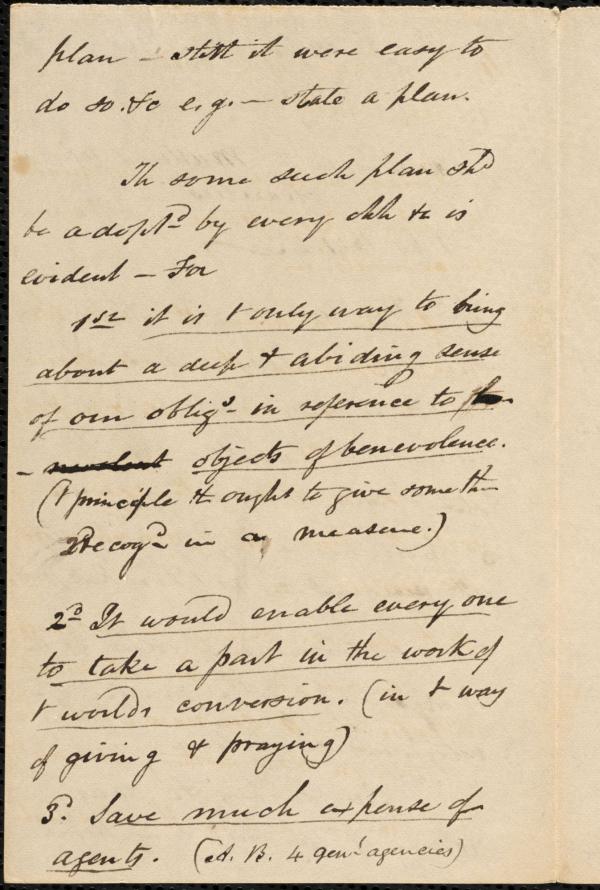 plan – still it were easy to
do so. &c e.g. – state a plan.
Th some such plan shd
be adoptd by every chh &c is
evident – For
1st it is t only way to bring
about a deep & abiding sense
of our obligs – in reference to
– objects of benevolence.
(t principle tt ought to give someth
recogd in a measure.)
2d It would enable every one
to take a part in the work of
t worlds conversion. (in t way
of giving & praying)
3d. Save much expense of
agents. (A. B. 4 genl agencies)